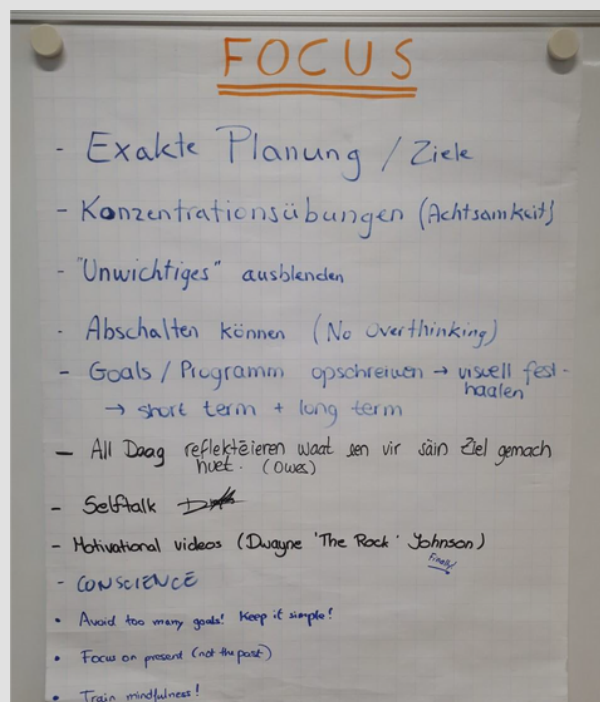 FOCUS
- Exakte Planung / Ziele
- Konzentrationsübungen (Achtsamkeit)
- "Unwichtiges" ausblenden
- Abschalten können (No Overthinking)
- Goals / Programm opschreiwen → visuell fest-
haalen
→ short term + long term
- All Daag reflektéieren waat een vir säin Ziel gemach
huet. (Owes)
- Selftalk
- Motivational videos (Dwayne 'The Rock' Johnson)
Finally
- CONSCIENCE
• Avoid too many goals! Keep it simple!
• Focus on present (not the past)
• Train mindfulness!